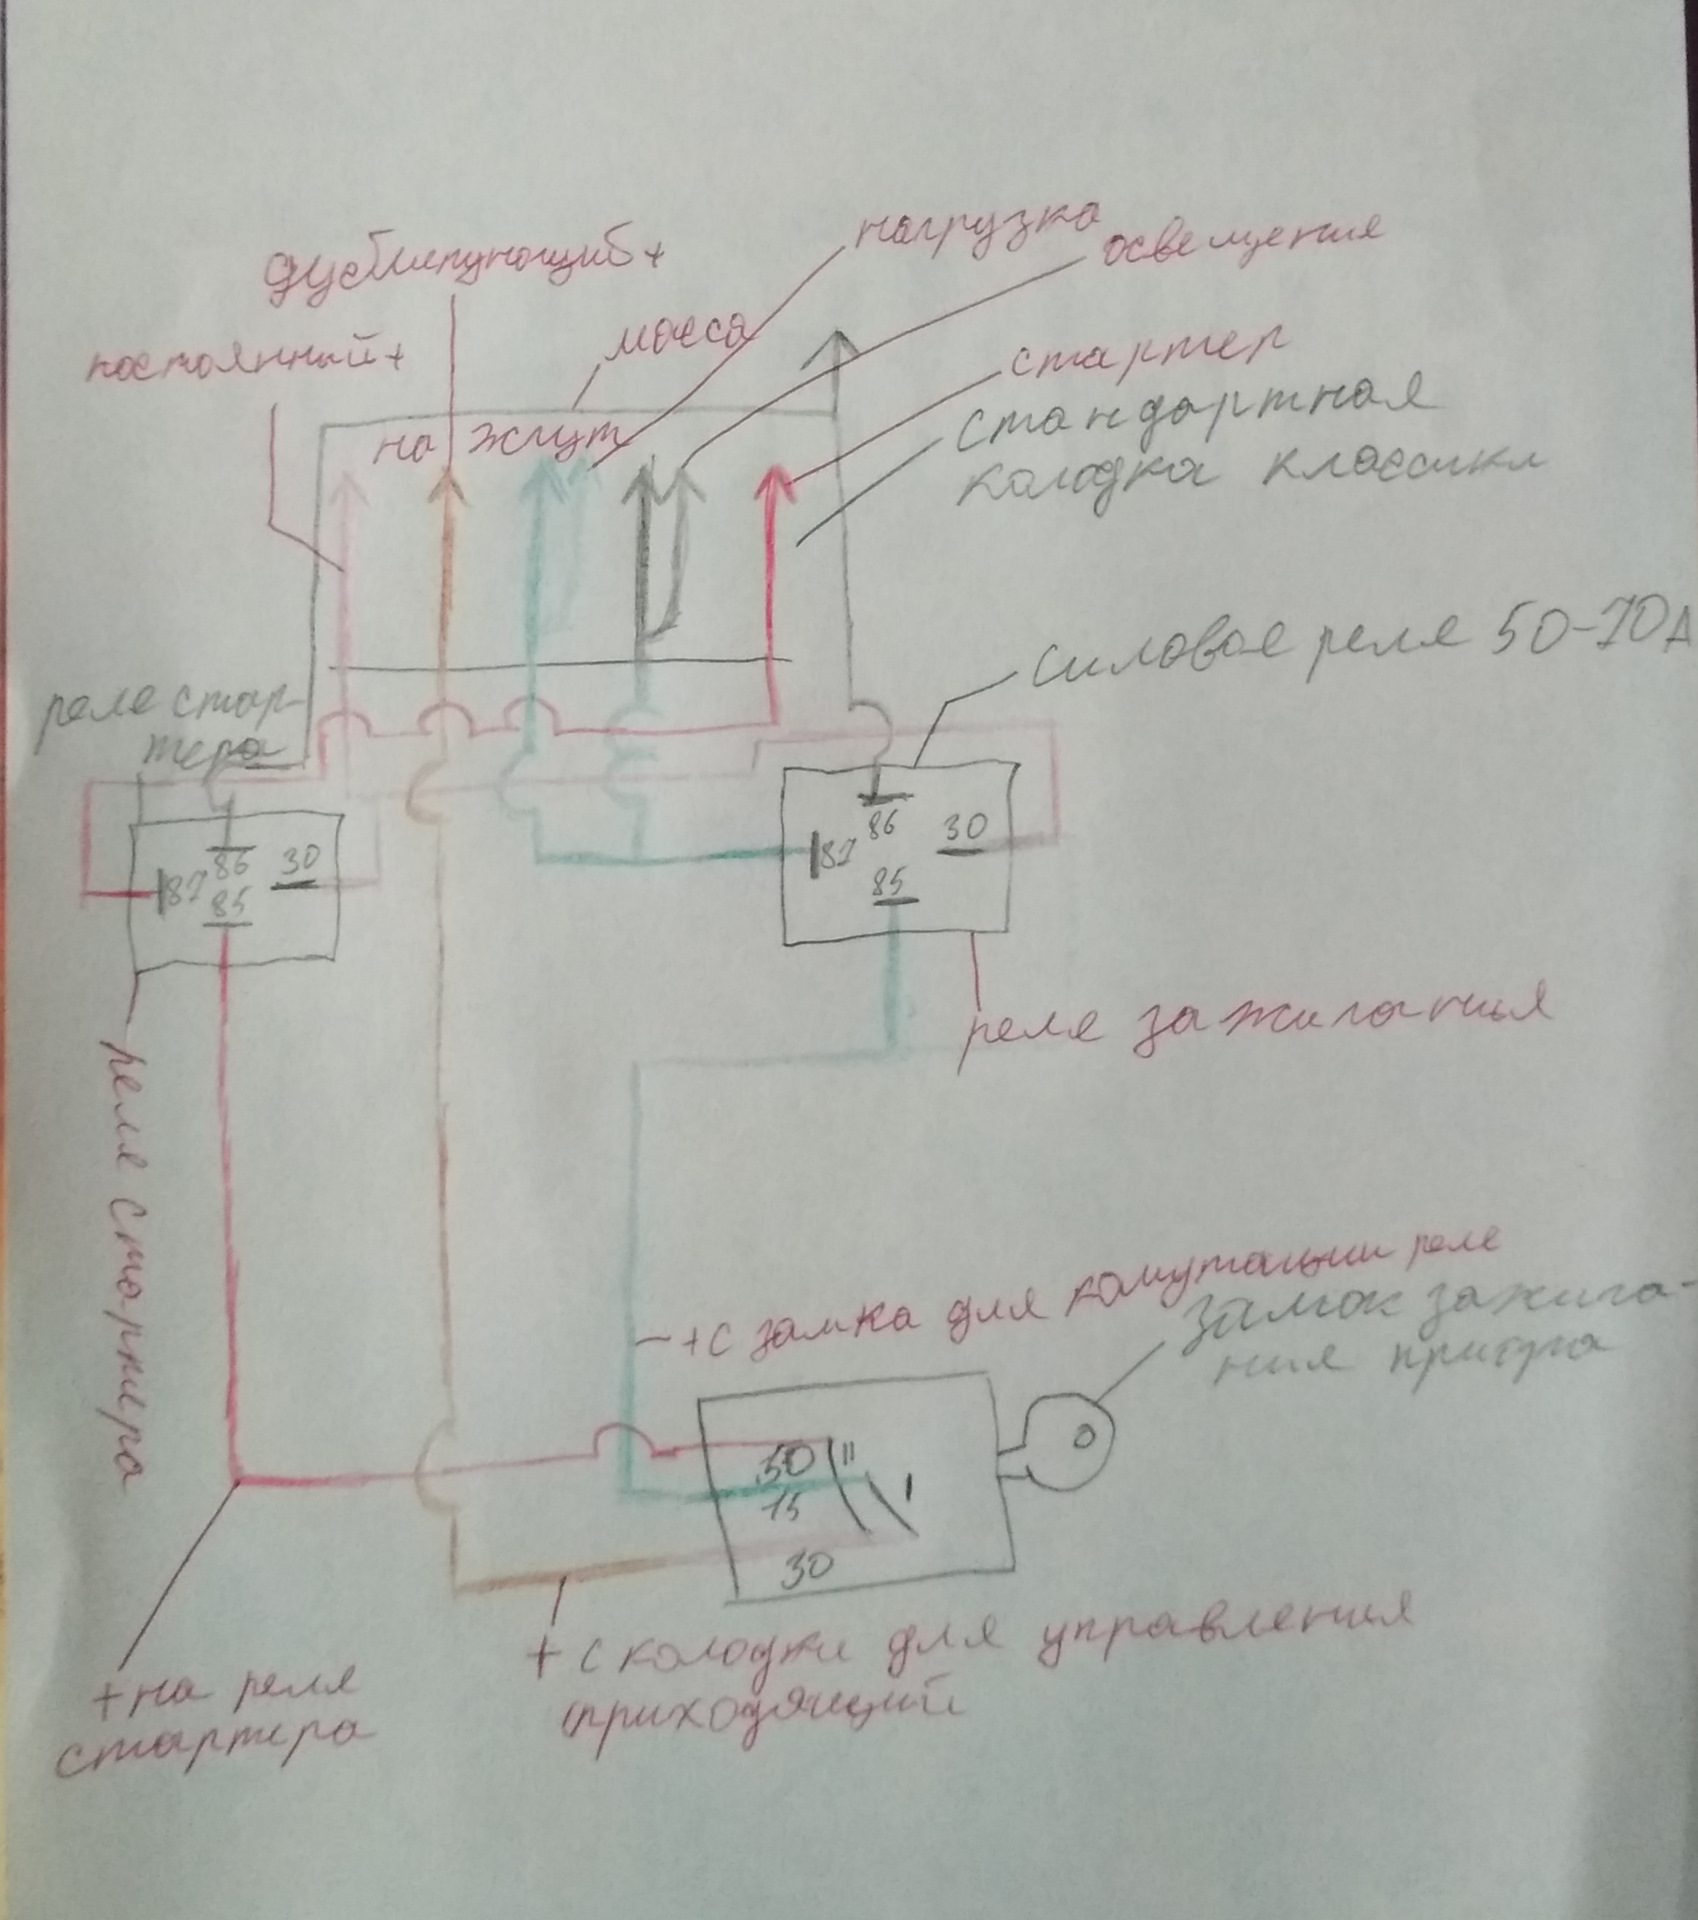 нагрузка
освещения
дублирующий +
масса
постоянный +
стартер
стандартная
колодка классики
на жгут
силовое реле 50-70А
реле стар-
тера
86
30
87
85
86
30
87
85
реле зажигания
реле стартера
+ с замка для комутации реле
замок зажига-
ния приора
50
II
15
I
30
+ с колодки для управления
приходящий
+ на реле
стартера